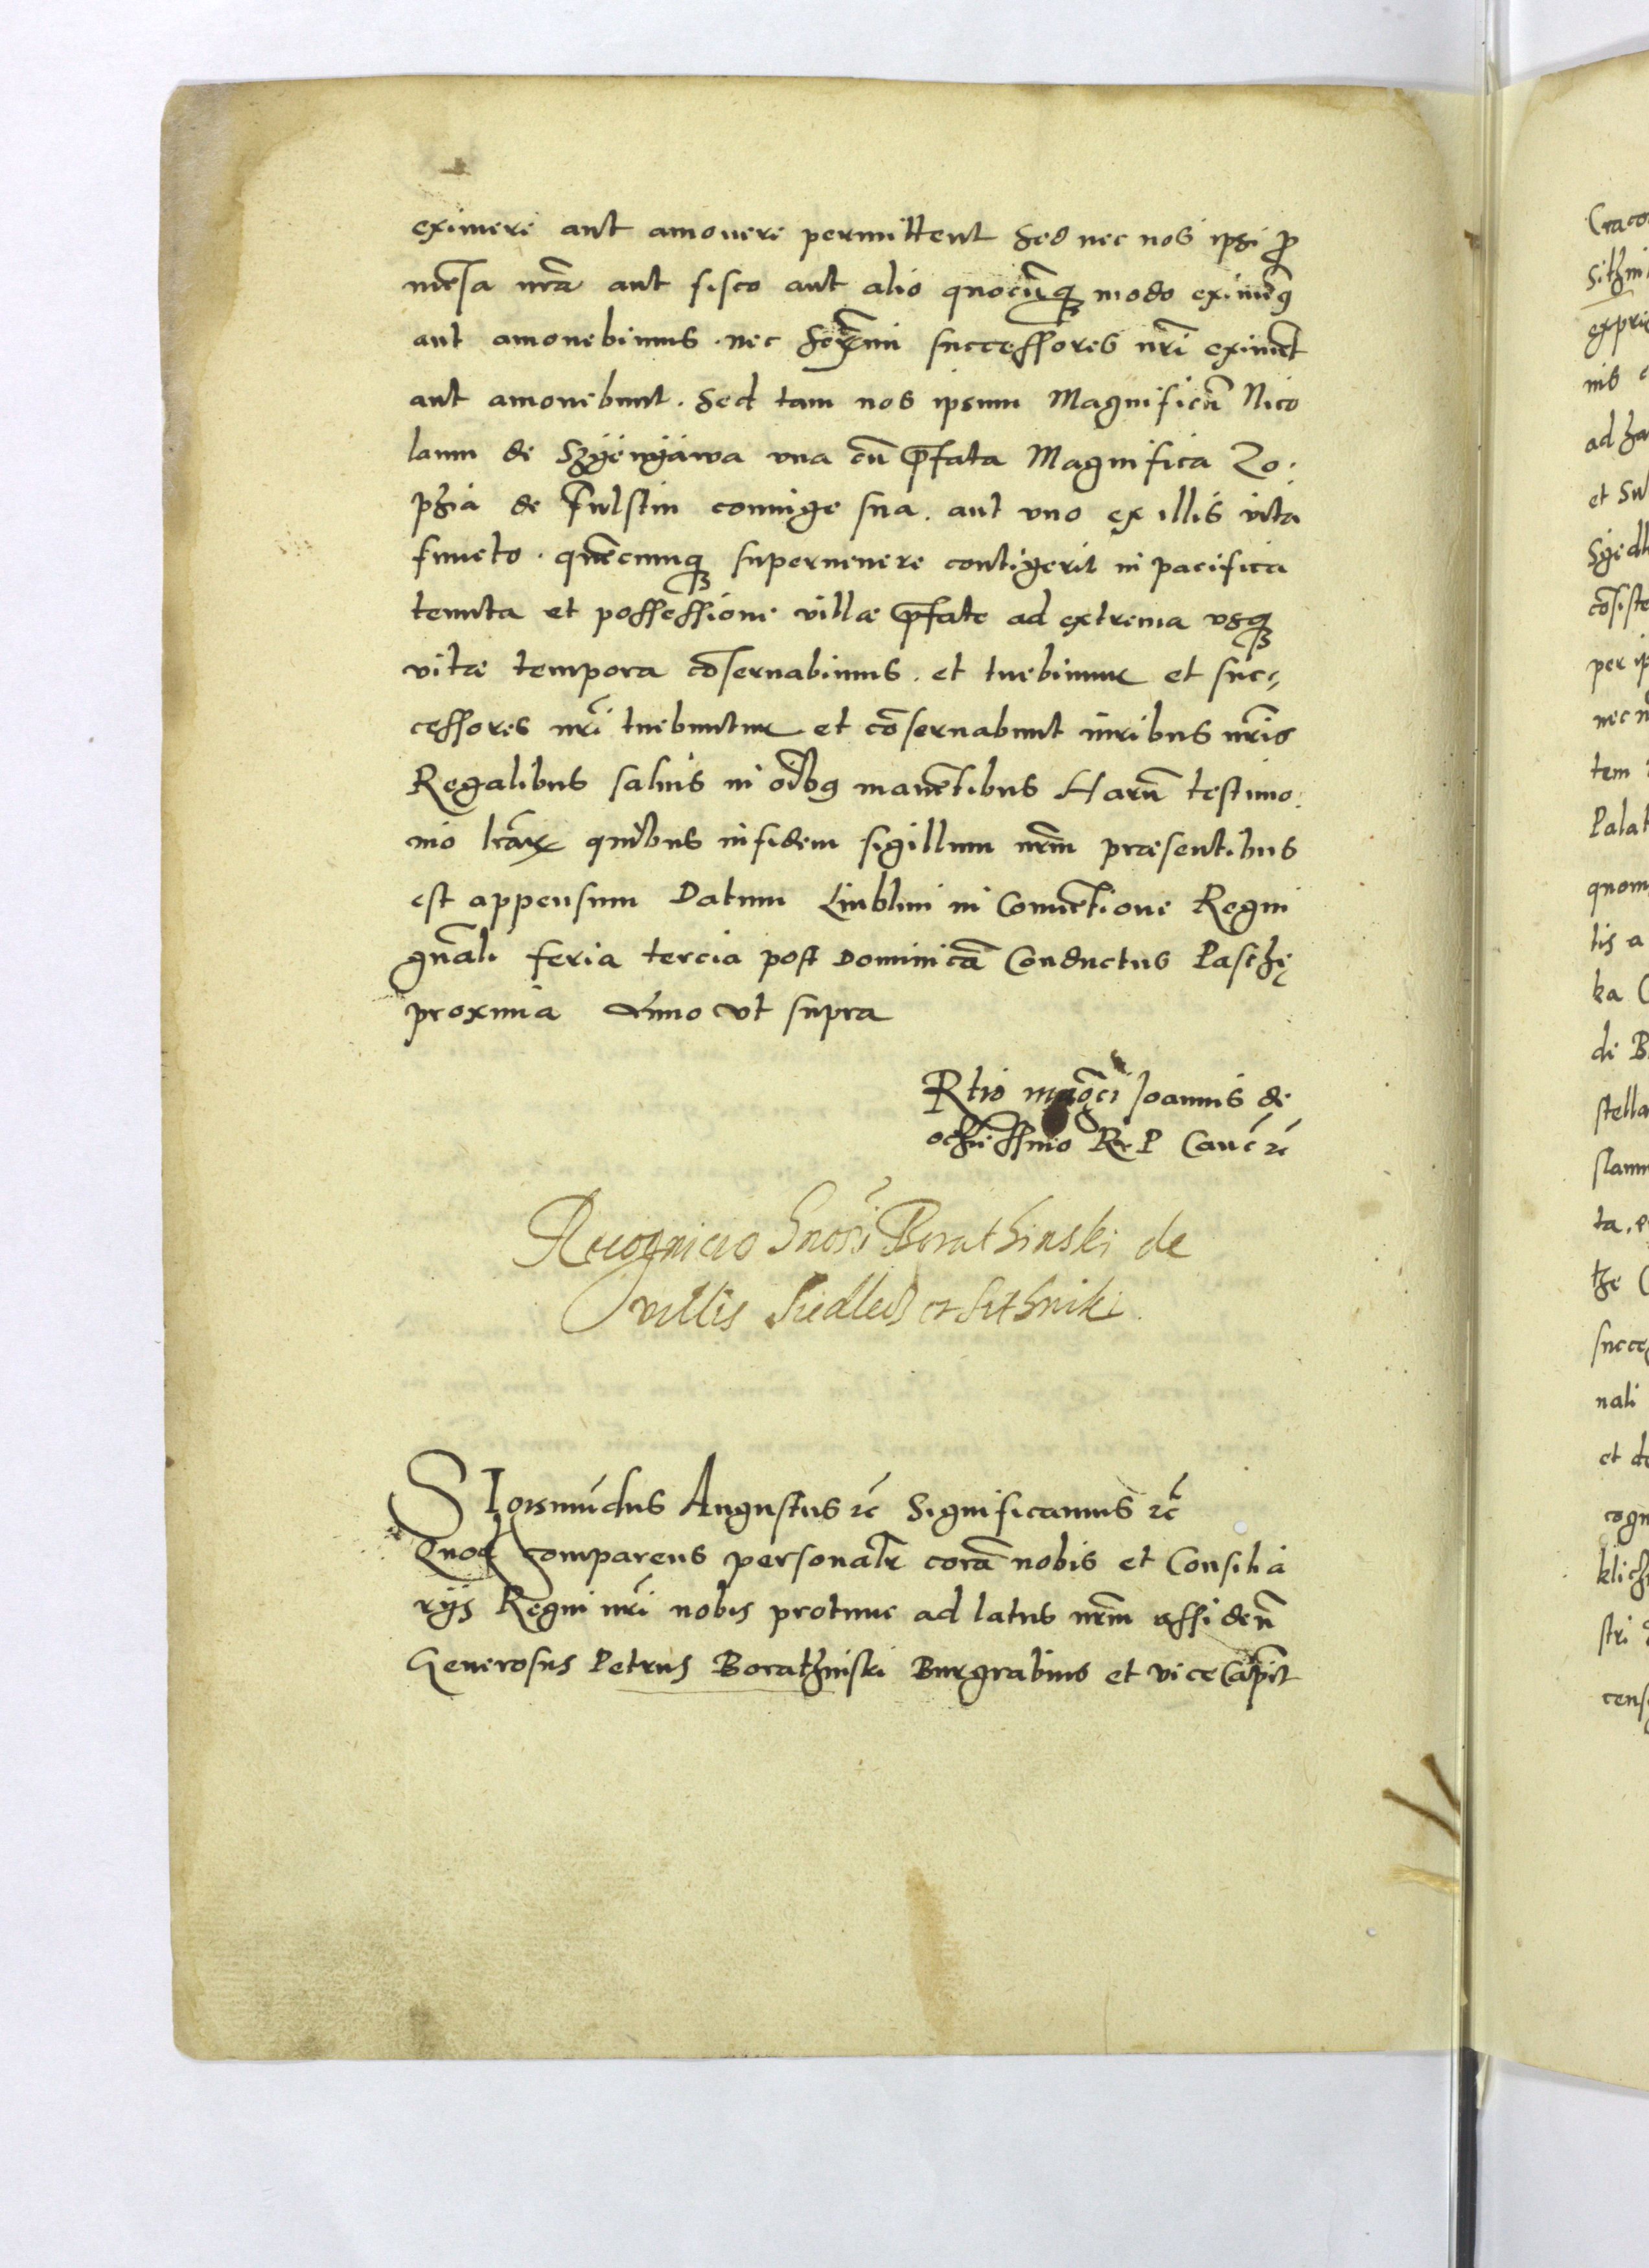 eximere aut amouere permittent Sed nec nos ipsi ꝓ
mēsa nrã aut fisco aut alio quocūqꝫ modo eximeꝯ
aut amouebimus. nec Serm̃i successores nr̃i eximēt
aut amouebunt. Sed tam nos ipsum Magnificū Nico
laum de Szyenyawa vna cū p̃fata Magnifica Zo.
phia de Fulstin coniuge sua. aut vno ex illis vita
functo. quēcunqꝫ superuenere contigerit in pacifica
tenuta et possessione villæ p̃fate ad extrema vsqꝫ
vitæ tempora cōseruabimus. et tuebimur et suc,
cessores nr̃i tuebuntur et cōseruabunt iuribus nr̃is
Regalibus saluis in oĩbꝯ manētibus Harū testimo.
nio lr̃aꝝ quibus in fidem sigillum nr̃m præsentibus
est appensum Datum Liublini in Conuētione Regni
gñali feria tercia post Dominicã Conductus Paschę
proxima Anno vt supra
Rtio mag̃ci Ioannis de
ochiessino R. P Canc̃ ꝛc̃
Recognicio Gnosi Borathinski de
villis Siedlecz et Sithniki
SIgismūdus Augustus ꝛc̃ Significamus ꝛc̃
Quod comparens personalr̃ corã nobis et Consilia
rijs Regni nr̃i nobis protunc ad latus nr̃m assideñ
Generosus Petrus Borathinski Burgrabius et viceCapit̃
Craco
Sithni
expri
nis
ad ha
et Su
Syedl
cōsiste
per ip
nec n
tem
Palat
quom
lis a
ka C
de B
stella
slaum
ta. e
the C
succe
nali
et de
cogn
klich
stri
cens